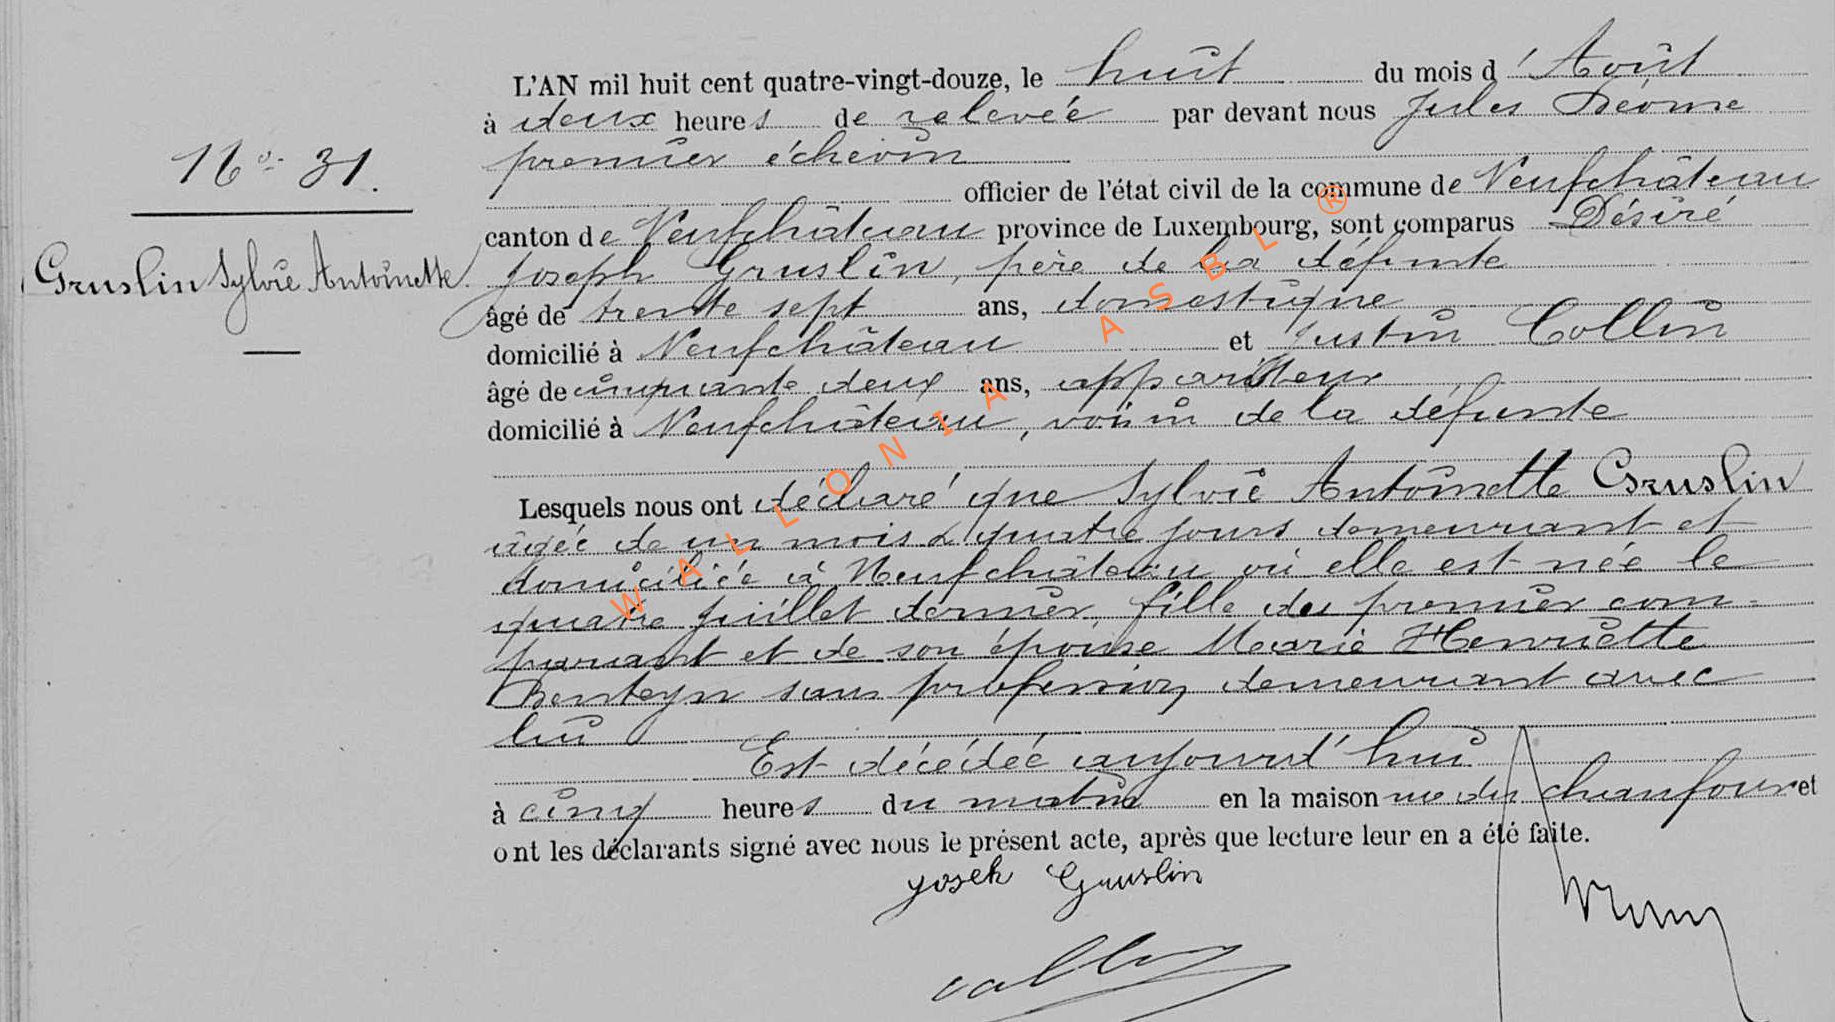 L'AN mil huit cent quatre-vingt-douze, le huit du mois d'Août
à deux heures de relevée par devant nous Jules Déome
premier échevin
officier de l'état civil de la commune de Neufchâteau
N° 31.
canton de Neufchâteau province de Luxembourg, sont comparus Désiré
Gruslin Sylvie Antoinette.
Joseph Gruslin, père de la défunte
âgé de trente sept ans, domestique
domicilié à Neufchâteau et Justin Collin
âgé de cinquante deux ans, appariteur
domicilié à Neufchâteau, voisin de la défunte
Lesquels nous ont déclaré que Sylvie Antoinette Gruslin
âgée de un mois & quatre jours demeurant et
domiciliée à Neufchâteau où elle est née le
quatre juillet dernier, fille du premier com-
parant et de son épouse Marie Henriette
sans profession, demeurant avec
lui
Est décédée aujourd'hui
à cinq heures du matin en la maison rue du Chaufour et
ont les déclarants signé avec nous le présent acte, après que lecture leur en a été faite.
Joseh Gruslin
Collin
WALLONIA ASBL ®